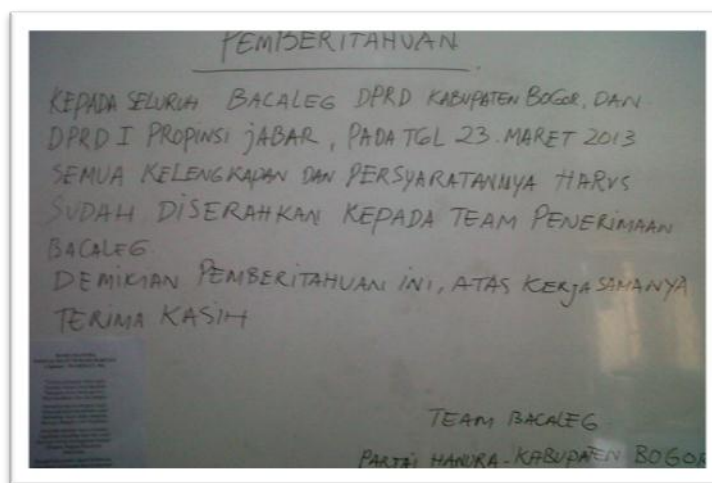 PEMBERITAHUAN
KEPADA SELURUH BACALEG DPRD KABUPATEN BOGOR, DAN
DPRD I PROPINSI JABAR, PADA TGL 23. MARET 2013
SEMUA KELENGKAPAN DAN PERSYARATANNYA HARUS
SUDAH DISERAHKAN KEPADA TEAM PENERIMAAN
BACALEG.
DEMIKIAN PEMBERITAHUAN INI, ATAS KERJASAMANYA
TERIMA KASIH
TEAM BACALEG
PARTAI HANURA-KABUPATEN BOGOR